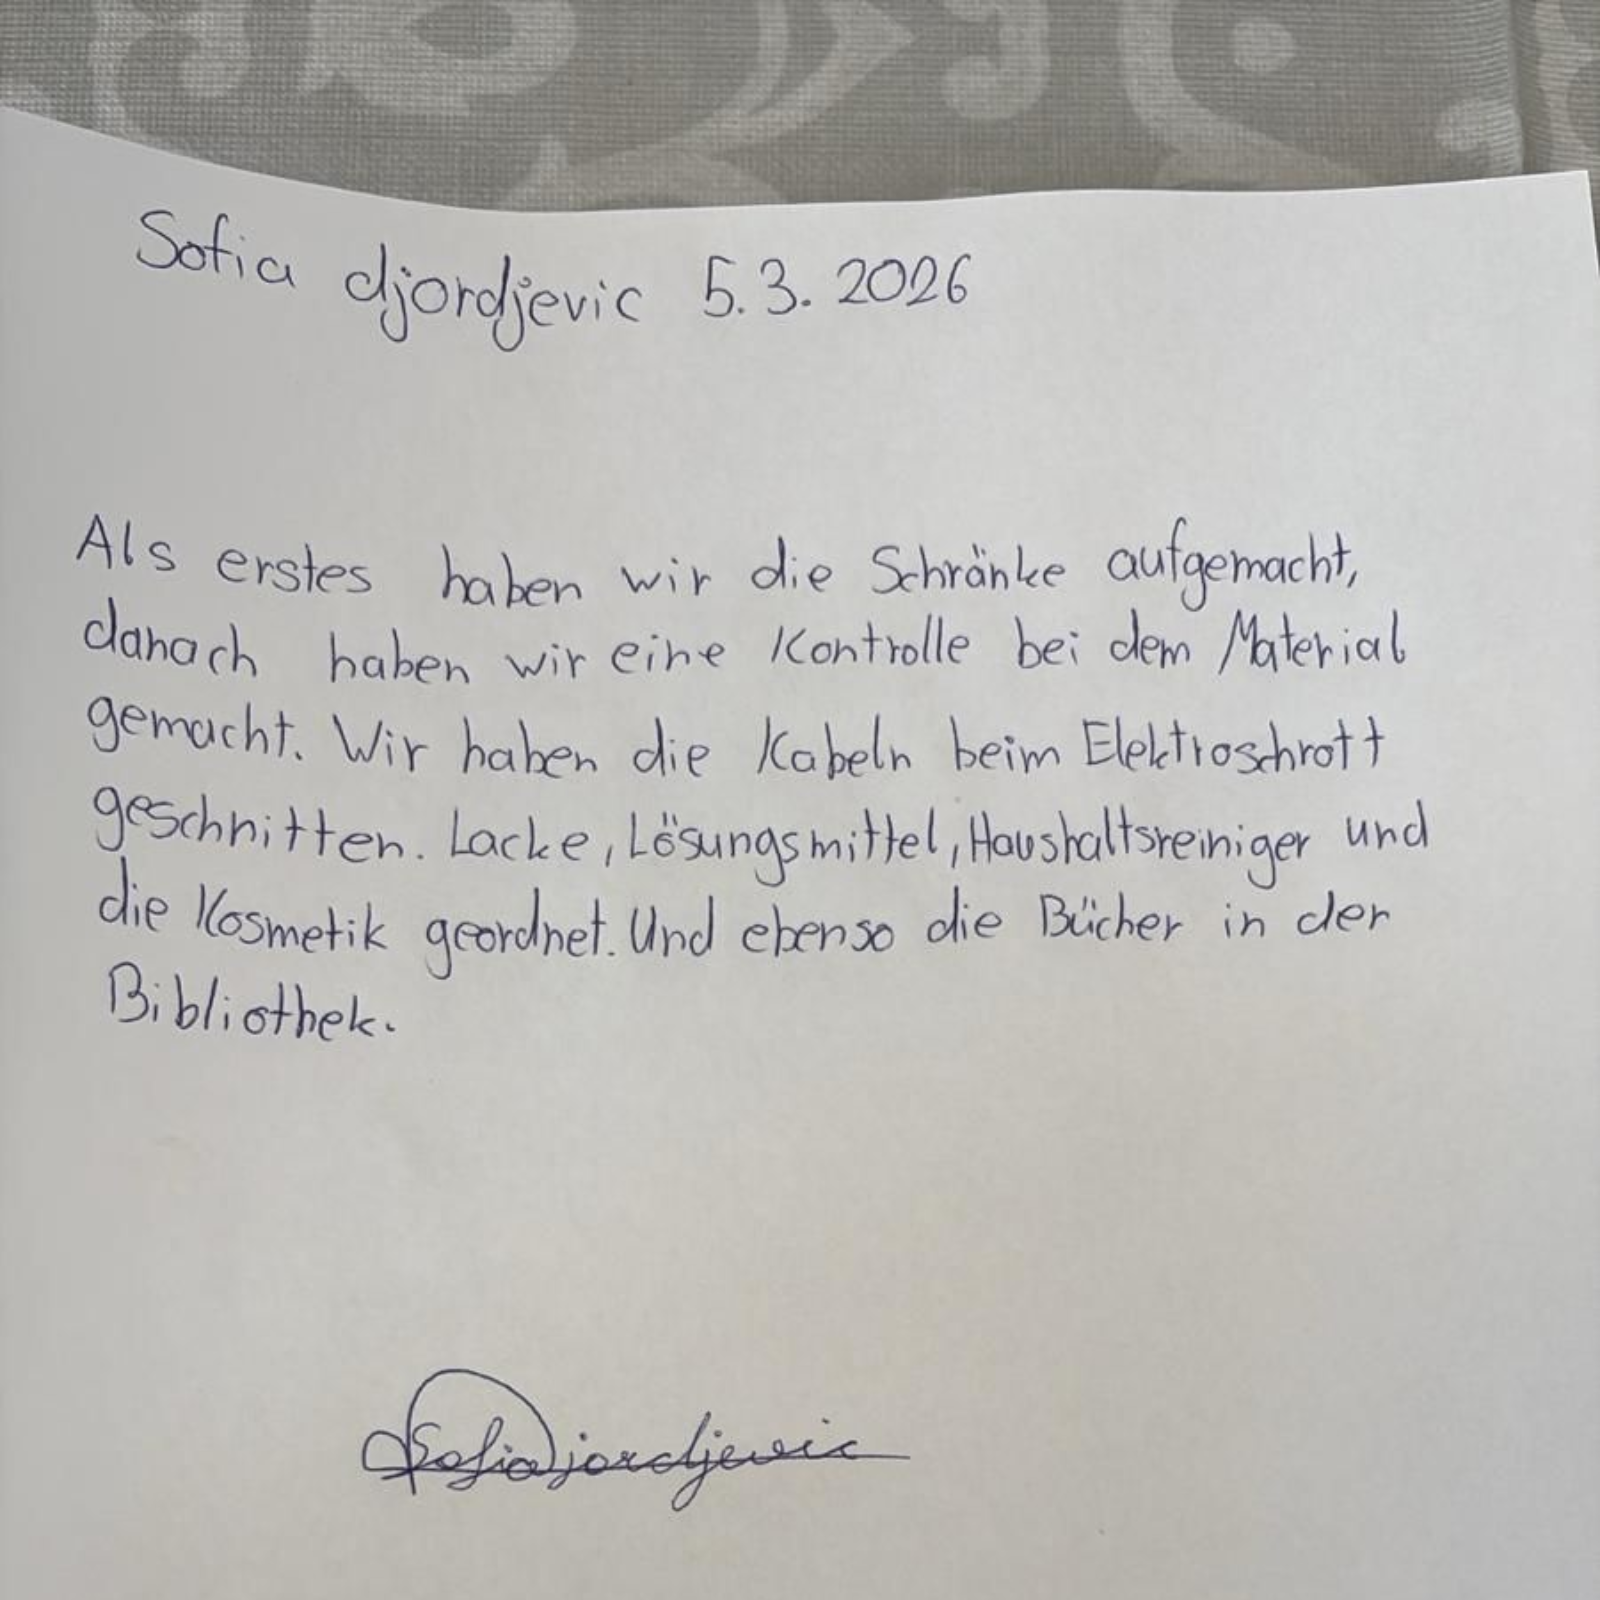 Sofia djordjevic 5.3.2026
Als erstes haben wir die Schränke aufgemacht,
danach haben wir eine Kontrolle bei dem Material
gemacht. Wir haben die Kabeln beim Elektroschrott
geschnitten. Lacke, Lösungsmittel, Haushaltsreiniger und
die Kosmetik geordnet. Und ebenso die Bücher in der
Bibliothek.
Sofia Djordjevic